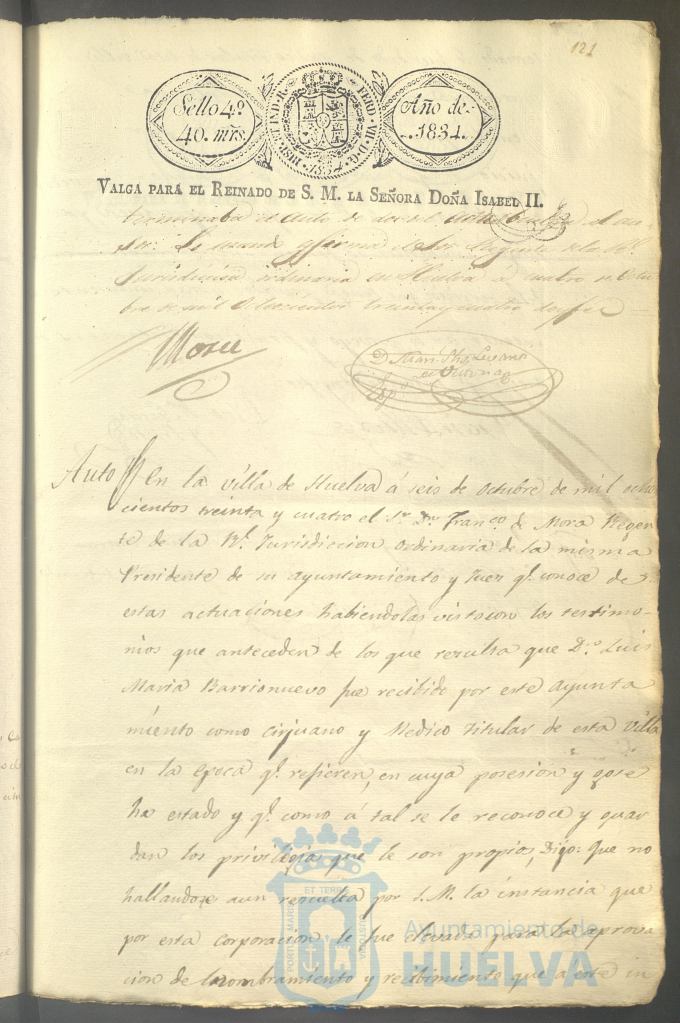 121
Sello 4º.
40. mrs.
HISP. ET IND. R. FERD. VII. D. G. 1834
Año de
1834.
VALGA PARA EL REINADO DE S. M. LA SEÑORA DOÑA ISABEL II.
Jurisdiccion ordinaria en Huelva a cuatro de Octu
bre de mil ochocientos treinta y cuatro doy fee
Mora
Auto En la villa de Huelva á seis de Octubre de mil ocho
cientos treinta y cuatro el Sr. Dn. Franco. de Mora Regen
te de la Rl. Jurisdiccion Ordinaria de la misma
Presidente de su ayuntamiento y Juez qe. conoce de
estas actuaciones habiendolas visto con los testimo-
nios que anteceden de los que resulta que Dn. Luis
Maria Barrionuevo fue recibido por este ayunta
miento como Cirjuano y Medico titular de esta villa
en la epoca qe. refieren, en cuya posesion y goze
ha estado y qe. como á tal se le reconoce y guar
dan los privilegia que le son propios, Dijo: Que no
hallandoze aun resuelta por S. M. la instancia que
por esta corporacion le fue elevada para la aprova
cion de el nombramiento y recibimiento que a este in
PORTUS MARIS ET TERRE CUSTODIA
Ayuntamiento de
HUELVA